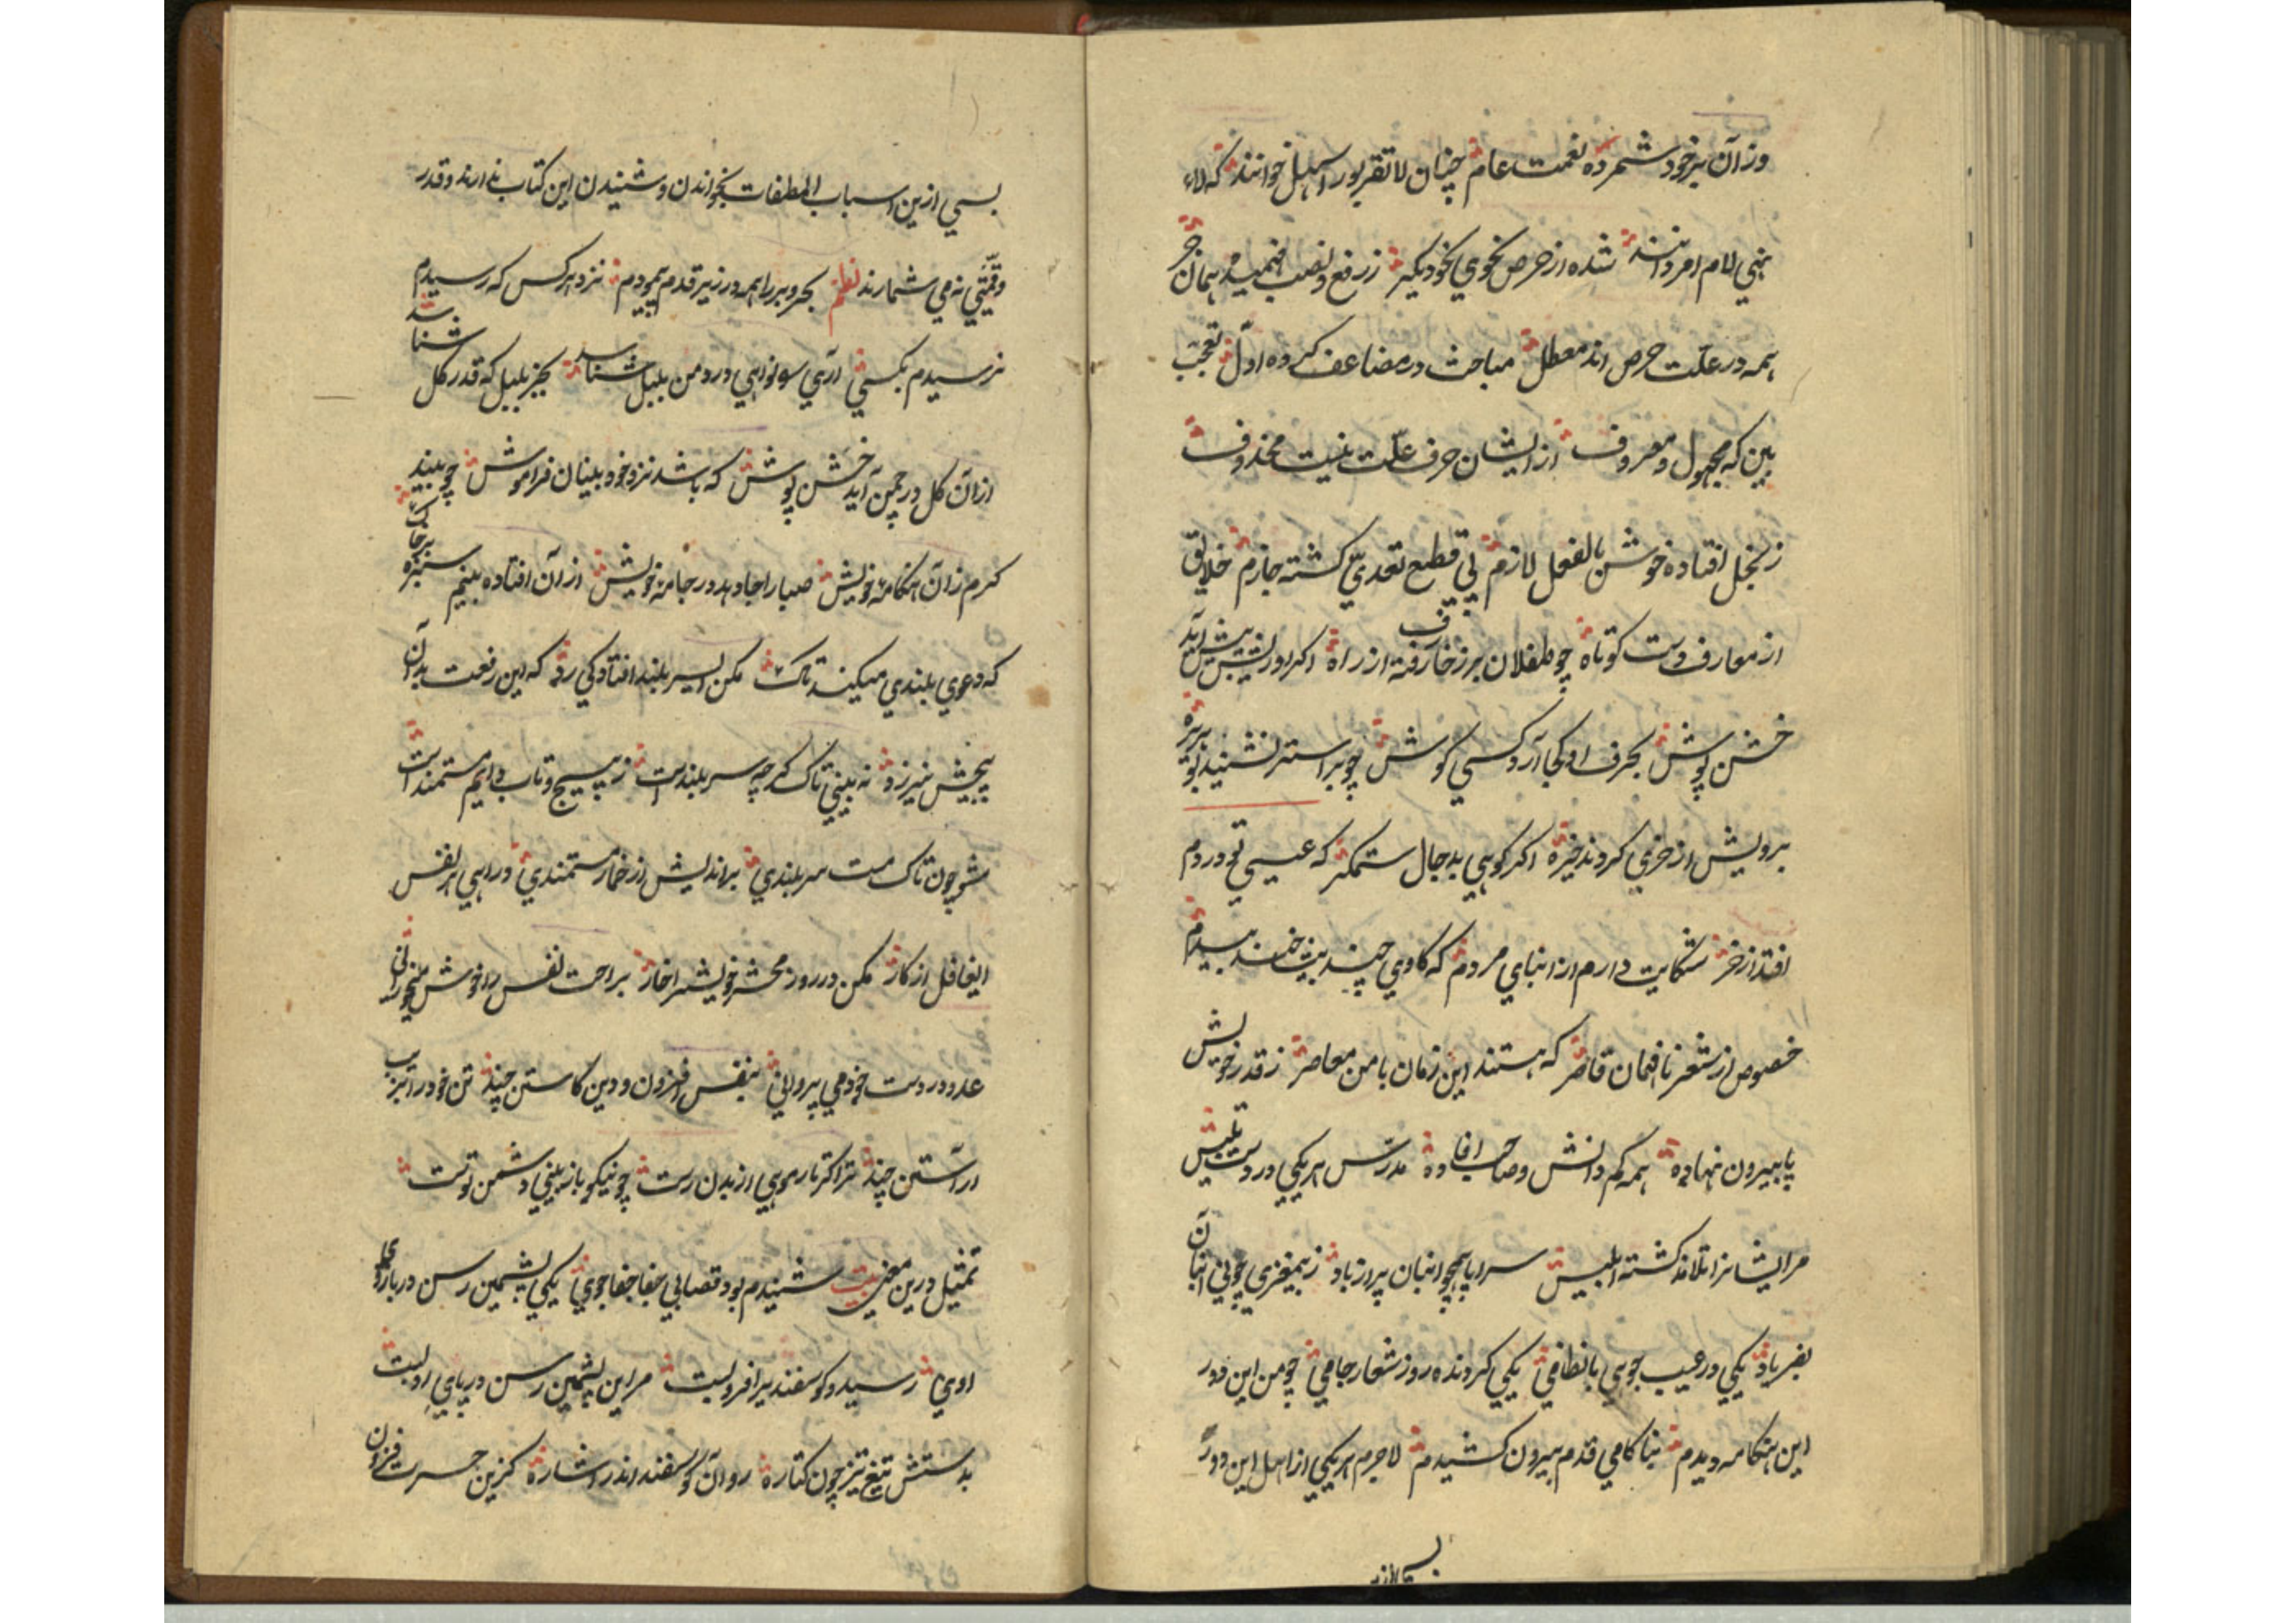 وزان بر خود شمرده نعمت عام چنان لا تقربوا را سهل خوانند که لاء
نهی لام امر دانند شده از حرص نحوی نحو دیگر ز رفع و نصب فهمیده همان جر
همه در علت حرص اند معطل مباحث در مضاعف کرده اول تعجب
بین که مجهول و معروف از ایشان حرف علت نیست محذوف
ز بخل افتاده خوش بالفعل لازم پی قطع تعدی کشته جازم خلایق
از معارف دست کوتاه چو طفلان بر زخارف رفته از راه اکر درپیش آید
خشن پوش بحرف او کجا آرد کسی کوش چو بر استر نشیند
برویش از خری کردند خیره اکر کوهی بدجال ستمکر که عیسی تو در دم
افتد از خر شکایت دارم از ابنای مردم که کاوی چند بینند بیدم
خصوص از شعر نافهمان قاصر که هستند این زمان با من معاصر ز قدر خویش
پا بیرون نهاده همه کم دانش و صاحب افاده مدرس هر یکی در درس تلبیس
مر ایشانرا تلامذ کشته ابلیس سراپا همچو انبان پر از باد ز بیمغزی چو نی انبان
بفریاد یکی در عیب جویی با نظامی یکی کردنده روز شعار جامی چو من این دور
این هنکامه دیدم بناکامی قدم بیرون کشیدم لاجرم هر یکی از اهل این دور
بسی ازین
بسی ازین اسباب المطفات بخواندن و شنیدن این کتاب ندارند و قدر
و قیمتی نه می شمارند نظم بحر و بر را همه در زیر قدم پیمودم نزد هر کس که رسیدم
نرسیدم بکسی آری درد من بلبل شناسد بجز بلبل که قدر کل شناسد
از آن کل در چمن آید خشن پوش که باشد نزد خود بینان فراموش چو بیند
کرم ز آن هنکامه خویش صبا را جا دهد در جامه خویش از آن افتاده بینم سبزه بر خاک
که دعوی بلندی میکند تاک مکن ای سر بلند افتادکی رد که این رفعت بدان
پیچش نیرزد نه بینی تاک کرچه سر بلندست ز پیچ و تاب دایم مستمندست
مشو چون تاک مست سر بلندی براندیش از خمار مستمندی درآیی هر نفس
ای غافل از کار مکن در روز محشر خویش را خار براحت نفس را خوش
عدو در دست خود می پرورانی بنفس افزودن و دین کاستن چند تن خود را بزیب
آراستن چند ترا کر تار مویی از بدن رست چو نیکو باز بینی دشمن تست
تمثیل درین معنی بیت شنیدم بود قصابی جفا جوی یکی پشمین رسن در بازوی
اوی رسید و کوسفند پیر افرو بست مر این پشمین رسن در پای او بست
بدستش تیغ تیز چون کتاره روان کوسفند اندر اشاره کزین حسرت فزون